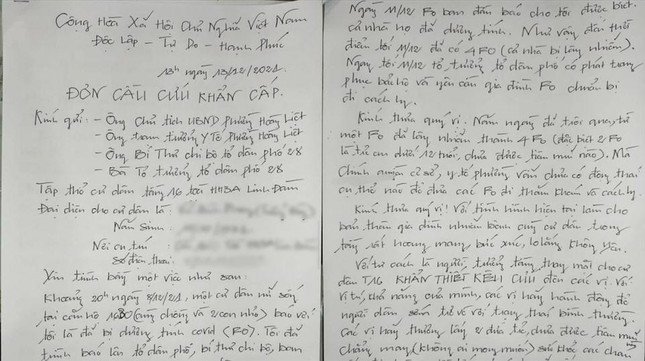 Cộng Hòa Xã Hội Chủ Nghĩa Việt Nam
Độc Lập - Tự Do - Hạnh Phúc
13h ngày 13/12/2021.
ĐƠN CẦU CỨU KHẨN CẤP.
Kính gửi: - Ông Chủ tịch UBND Phường Hoàng Liệt
- Ông trạm trưởng Y Tế Phường Hoàng Liệt
- Ông Bí Thư chi bộ tổ dân phố 28
- Bà Tổ trưởng tổ dân phố 28
Tập thể cư dân tầng 16 toà HH3A Linh Đàm
Đại diện cho cư dân là:
Năm Sinh:
Nơi cư trú
Số điện thoại:
Xin trình bày một việc như sau:
Khoảng 20h ngày 8/12/21, một cư dân nữ sống
tại căn hộ (cùng chồng và 2 con nhỏ) báo với
tôi là đã bị dương tính covid (FO). Tôi đã
trình báo lên tổ dân phố, bí thư chi bộ, ban
Ngày 11/12 Fo ban đầu báo cho tôi được biết
cả nhà họ đã dương tính. Như vậy đến thời
điểm tối 11/12 đã có 4 FO (cả nhà bị lây nhiễm).
Ngay tối 11/12 tổ trưởng tổ dân phố có phát trang
phục bảo hộ và yêu cầu gia đình Fo chuẩn bị
đi cách ly.
Kính thưa quý vị. Năm ngày đã trôi qua, từ
một FO đã lây nhiễm thành 4 FO (đặc biệt 2 FO
là trẻ em dưới 12 tuổi, chưa được tiêm mũi nào). Mà
Chính quyền cơ sở, y tế phường vẫn chưa có động thái
cụ thể nào để đưa các Fo đi thăm khám và cách ly.
Kính thưa quý vị! Với tình hình hiện tại làm cho
bản thân gia đình nhiễm bệnh cùng cư dân trong
tầng rất hoang mang bức xúc, lo lắng không yên.
Với tư cách là người trưởng tầng thay mặt cho cư
dân T16 KHẨN THIẾT KÊU CỨU đến các vị. Với
vị trí, khả năng của mình, các vị hãy hành động để
người dân sớm trở về với trạng thái bình thường.
Các vị hãy thương lấy 2 đứa trẻ, chưa được tiêm mũi
chẳng may (không ai mong muốn) sức khoẻ các cháu